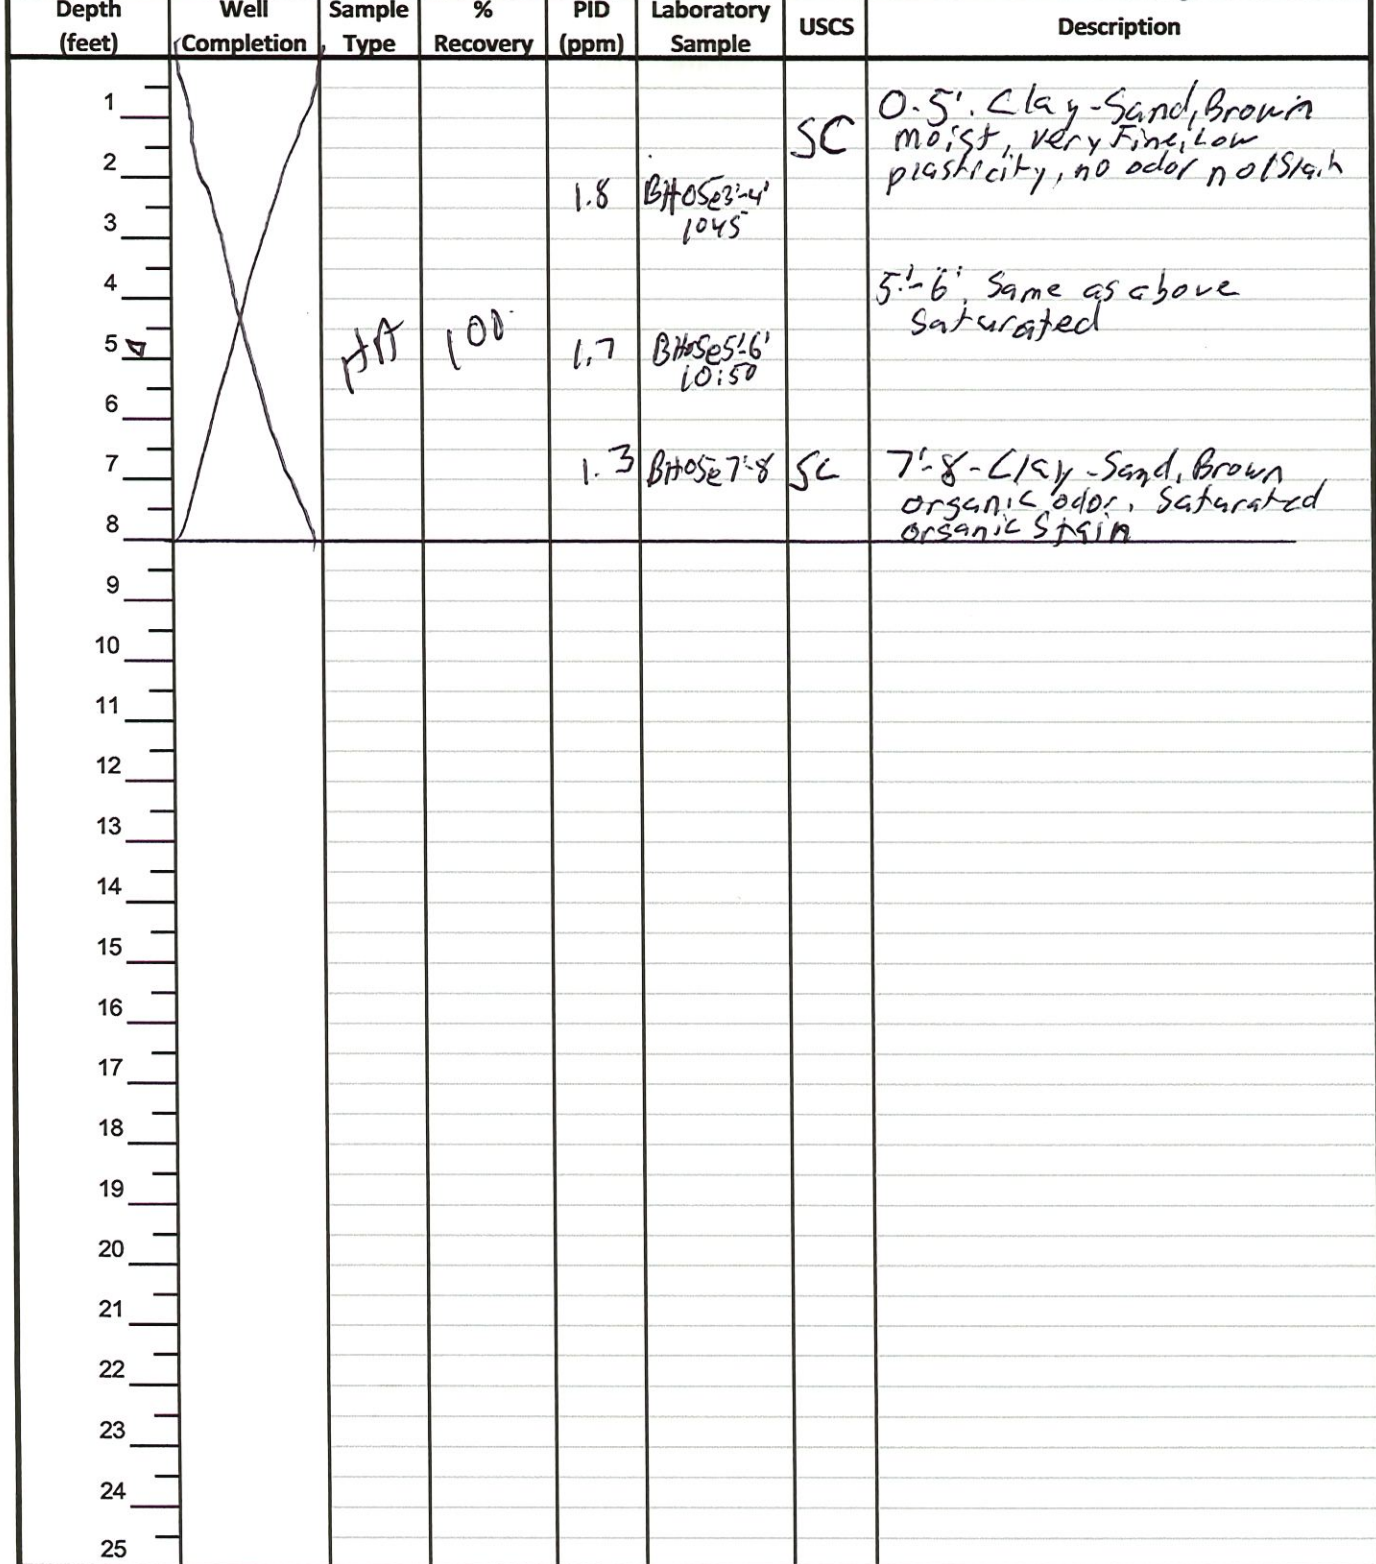 Depth (feet) Well Completion Sample Type % Recovery PID (ppm) Laboratory Sample USCS Description
1
SC
0-5'. Clay-Sand, Brown
moist, very Fine, Low
plasticity, no odor no/Stain
2
1.8 BH05e3'-4'
1045
3
4
5'-6', Same as above
Saturated
5 HA 100 1.7 BH05e5'-6'
10:50
6
7 1.3 BH05e7'-8 SC 7'-8-Clay-Sand, Brown
organic odor, Saturated
8 organic Stain
9
10
11
12
13
14
15
16
17
18
19
20
21
22
23
24
25